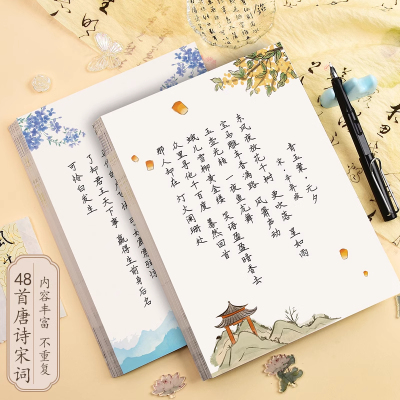 青玉案 元夕
宋 辛弃疾
东风夜放花千树 更吹落 星如雨
宝马雕车香满路 凤箫声动
玉壶光转 一夜鱼龙舞
蛾儿雪柳黄金缕 笑语盈盈暗香去
众里寻他千百度 蓦然回首
那人却在 灯火阑珊处
了却君王天下事 赢得生前身后名
可怜白发生
内容丰富 不重复
48首唐诗宋词